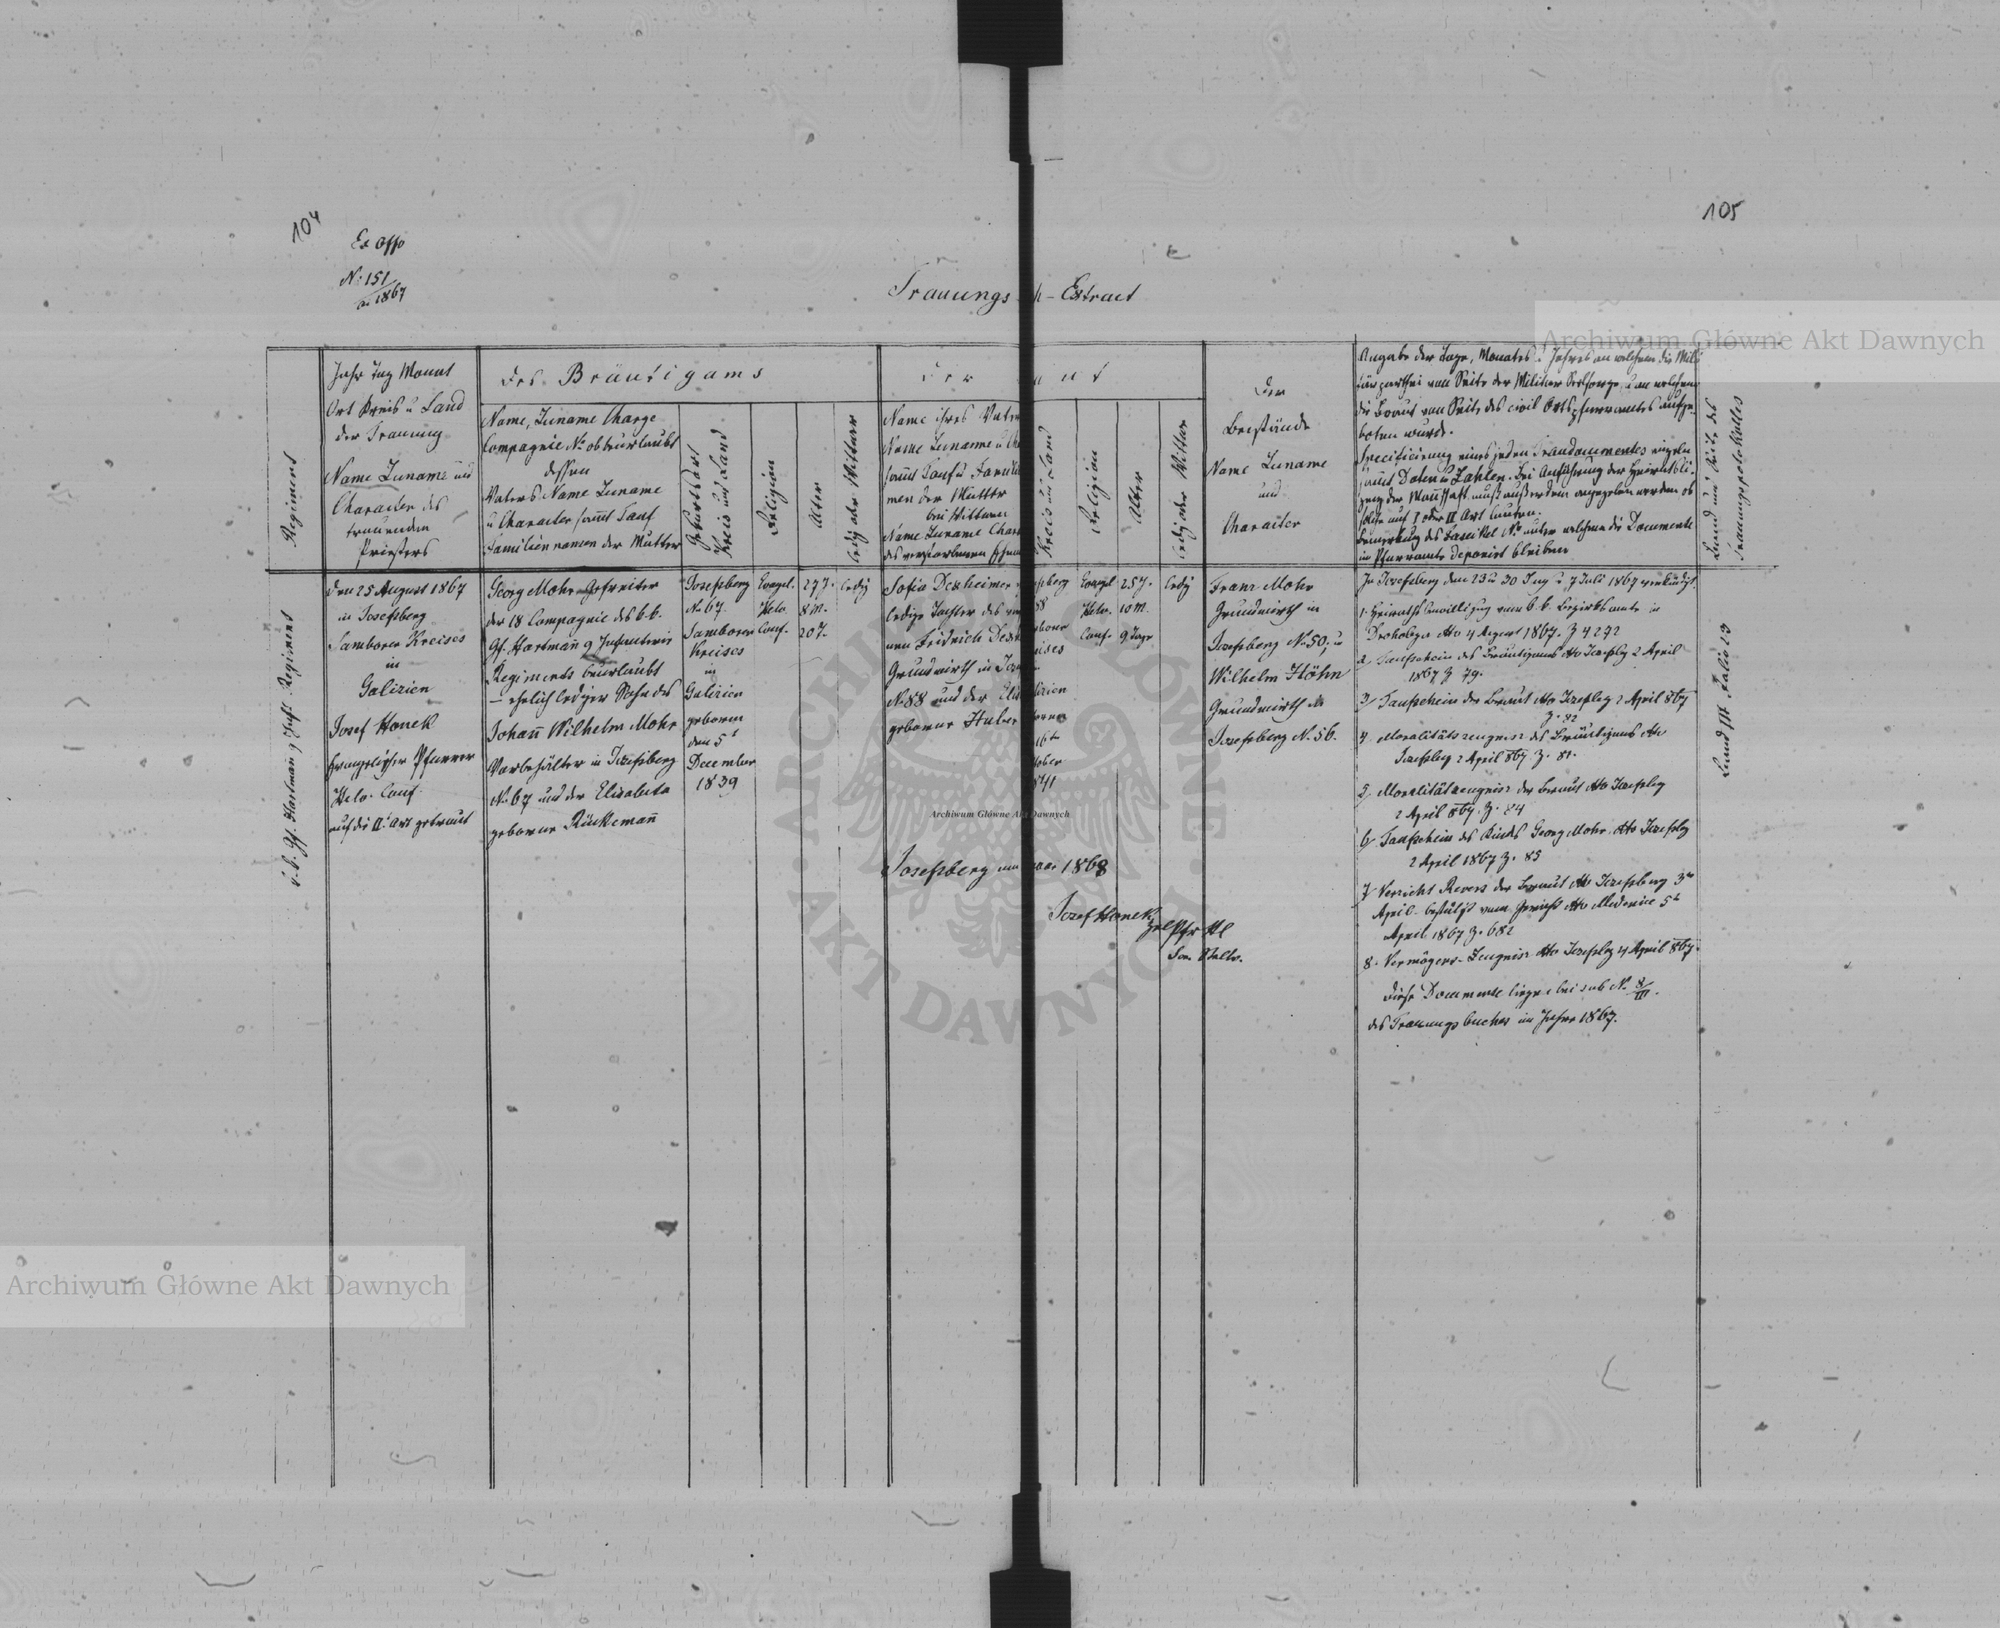 104
105
Ex offo
N: 151
ai 1867
Trauungs - Extract
Regiment
Jahr Tag Monat
Ort Kreis u Land
der Trauung
Name Zuname und
Charakter des
trauenden
Priesters
des Bräutigams
Name, Zuname Charge
Compagnie No ob beurlaubt
dessen
Vaters Name Zuname
u Charakter sammt Tauf
Familiennamen der Mutter
Geburtsort
Kreis und Land
Religion
Alter
ledig oder Wittwer
Der
Name ihres Vaters
Name Zuname u
sammt Tauf u Famili
men der Mutter
bei Wittwen
Name Zuname Char
des verstorbenen
Kreis und Land
Religion
Alter
ledig oder Wittwe
Der
Beistände
Name Zuname
und
Charakter
Angabe der Tage, Monates u Jahres an welchem die Mili
tär parthei von Seite der Militär Seelsorge, u an welchem
die Braut von Seite des civil Ortspfarramtes aufge
boten wurde.
Specificirung eines jeden Traudocumentes
sammt Daten u Zahlen. Bei Anführung der Heiratsbewilli-
gung der Mannschaft muß außerdem angegeben werden ob
selbe auf I oder II Art lauten.
Bemerkung des Fascikel No unter welchem die Documente
im Pfarramte deponirt bleiben
Band und Seite des
Trauungsprotokolles
k. k. Gf. Hartmann 9 Inft Regiment
den 25 August 1867
in Josefsberg
Samborer Kreises
in
Galizien
Josef Honek
Evangelischer Pfarrer
Helv. Conf.
auf die IIt Art getraut
Georg Mohr Gefreiter
der 18 Compagnie des k. k.
Gf. Hartmann 9 Infanterie
Regiments beurlaubt
– ehelich lediger Sohn des
Johann Wilhelm Mohr
Vorbehälter in Josefsberg
No 67 und der Elisabeta
geborene Rückemann
Josefsberg
No 67.
Samborer
Kreises
in
Galizien
geboren
den 5t
December
1839
Evangel.
Helv.
Conf.
27 J.
8 M.
20 T.
ledig
Sofia Dexheimer
ledige Tochter des
nen Fridrich Dex
Grundwirth in Jose
No 88 und der Eli
geborene Huber
88
1841
Evangel
Helv.
Conf.
25 J.
10 M.
9 Tage
ledig
Franz Mohr
Grundwirth in
Josefsberg No 50, u
Wilhelm Höhn
Grundwirth in
Josefsberg N. 56.
In Josefsberg den 23 u 30 Juny u 7 Juli 1867 verkündigt.
1. Heiraths bewilligung vom k. k. Bezirksamte in
Drohobycz dto 4 August 1867. Z 4292
2. Taufschein des Bräutigams dto Josefsbg 2 April
1867 Z 79.
3. Taufschein der Braut dto Josefsbg 2 April 867
Z. 82
4. Moralitätszeugniss des Bräutigams dto
Josefsbg 2 April 867. Z. 81.
5. Moralitätszeugniss der Braut dto Josefsbg
2 April 867. Z. 84
6. Taufschein des Kindes Georg Mohr dto Josefsbg
2 April 1867 Z. 85
7. Verzicht Revers der Braut dto Josefsberg 3ten
April bestätigt vom Gericht dto Medenice 5t
April 1867 Z. 682
8. Vermögens-Zeugniss dto Josefsbg 4 April 867.
Diese Documente liegen bei sub No 8/III.
des Trauungsbuches im Jahre 1867.
Band III Folio 23
Josefsberg 1868
Josef Honek
Archiwum Główne Akt Dawnych
Archiwum Główne Akt Dawnych
Archiwum Główne Akt Dawnych
ARCHIWUM GŁÓWNE
AKT DAWNYCH